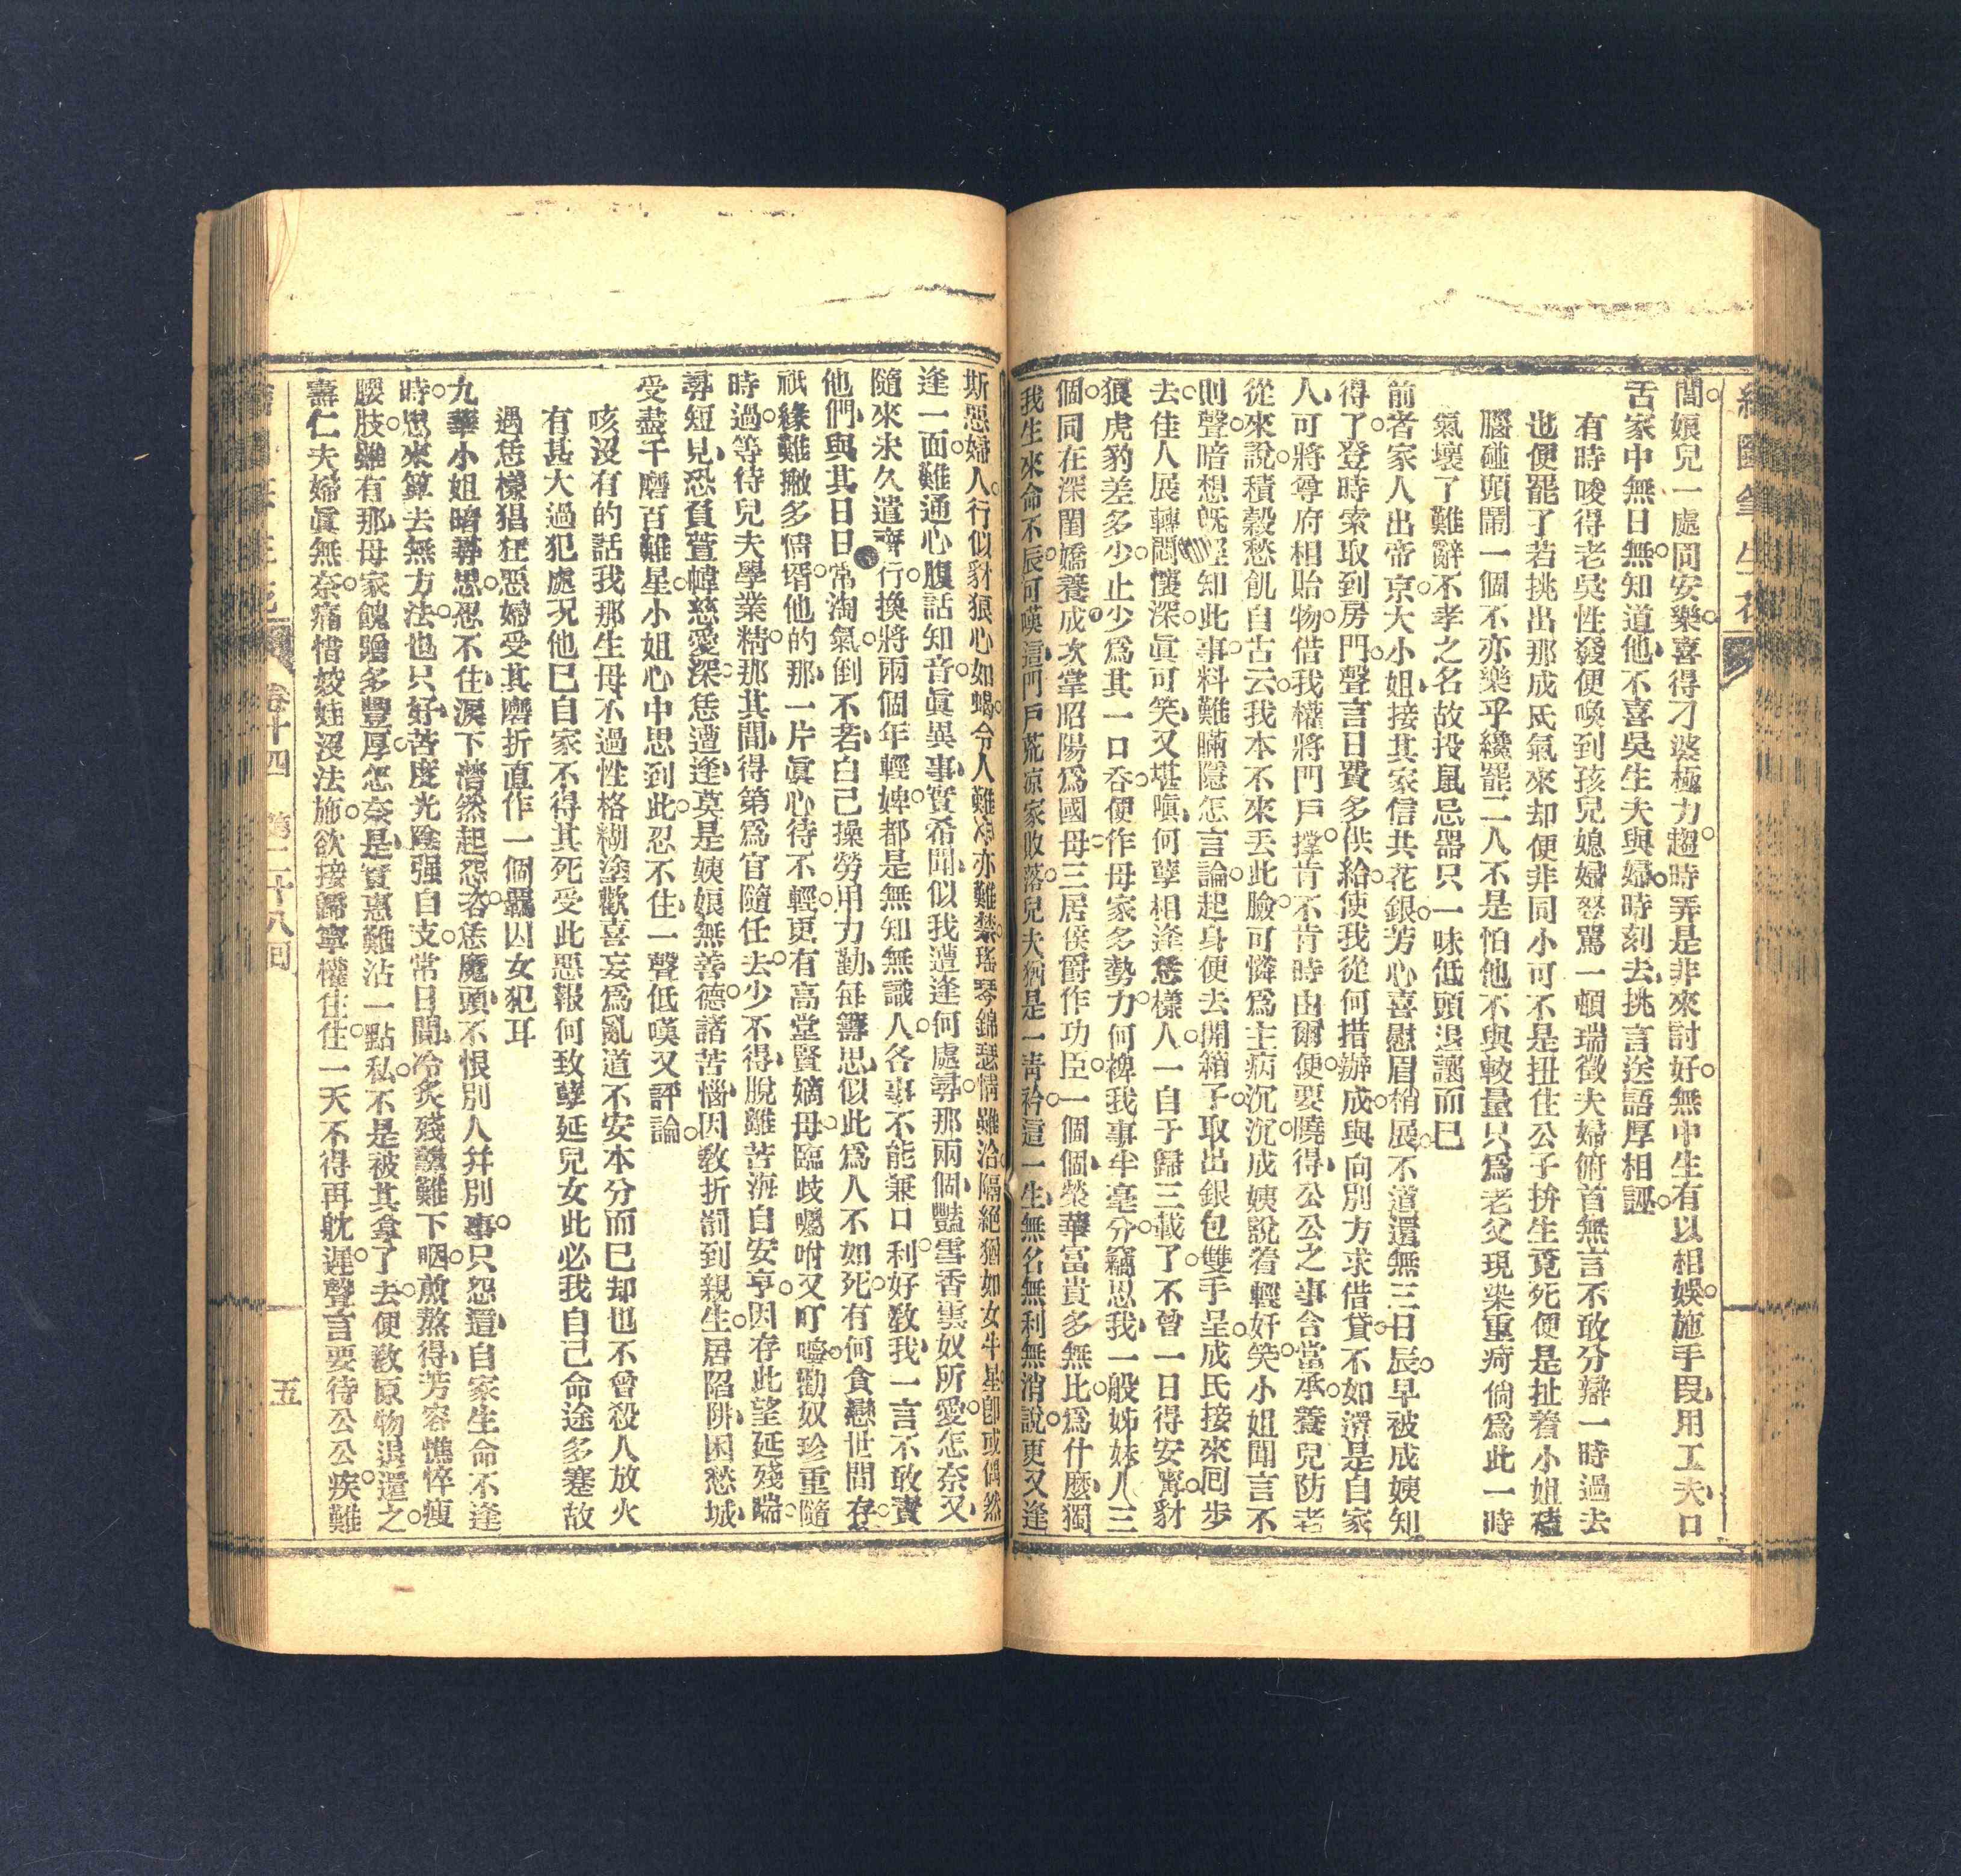 繪圖筆生花
間娘兒一處同安樂○喜得刁婆極力趨○時弄是非來討好○無中生有以相娛○施手段用工夫口
舌家中無日無○知道他不喜吳生夫與婦○時刻去挑言送語厚相誣○
有時唆得老吳性發便喚到孩兒媳婦怒罵一頓瑞徵夫婦俯首無言不敢分辯一時過去
也便罷了若挑出那成氏氣來却便非同小可不是扭住公子拚生覔死便是扯着小姐磕
腦碰頭鬧一個不亦樂乎纔罷二人不是怕他不與較量只爲老父現染重疴倘爲此一時
氣壞了難辭不孝之名故投鼠忌器只一味低頭退讓而已
前者家人出帝京○大小姐接其家信共花銀○芳心喜慰眉梢展○不道還無三日辰○早被成姨知
得了○登時索取到房門○聲言日費多供給○使我從何措辦成○與向別方求借貸○不如還是自家
人可將尊府相貽物○借我權將門戶撑○肯不肯時由爾便○要曉得公公之事合當承○養兒防老
從來說○積穀愁飢自古云○我本不來丟此臉○可憐爲主病沉沉○成姨說着輕奸笑○小姐聞言不
則聲○暗想旣經知此事○料難瞞隱怎言論○起身便去開箱子○取出銀包雙手呈○成氏接來回步
去○佳人展轉悶懷深○眞可笑又堪嗔何孽相逢恁樣人○一自于歸三載了○不曾一日得安甯○豺
狼虎豹差多少○止少爲其一口吞○便作母家多勢力○何裨我事半毫分○竊思我一般姊妹人三
個○同在深閨嬌養成○次掌昭陽爲國母○三居侯爵作功臣○一個個榮華富貴多無比○爲什麼獨
我生來命不辰○可嘆這門戶荒凉家敗落○兒夫猶是一靑衿○這一生無名無利無消說○更又逢
斯惡婦人○行似豺狼心如蝎○令人難冷亦難禁○瑤琴錦瑟情雖洽○隔絕猶如女牛星○卽或偶然
逢一面難通心腹話知音○眞異事實希聞似我遭逢何處尋○那兩個豔雪香雲奴所愛○怎奈又
隨來未久遣齊行○換將兩個年輕婢○都是無知無識人○各事不能兼口利○好教我一言不敢責
他們與其日日常淘氣○倒不若自己操勞用力勤每籌思似此爲人不如死○有何貪戀世間存○
祇緣難撇多情壻○他的那一片眞心待不輕○更有高堂賢嫡母○臨歧囑咐又叮嚀○勸奴珍重隨
時過○等待兒夫學業精○那其間得第爲官隨任去○少不得脫離苦海自安亨○因存此望延殘喘○
尋短見恐負萱幃慈愛深○恁遭逢莫是姨娘無善德○諸苦惱因教折罰到親生○居陷阱困愁城
受盡千磨百難星○小姐心中思到此○忍不住一聲低嘆又評論○
咳沒有的話我那生母不過性格糊塗歡喜妄爲亂道不安本分而已却也不曾殺人放火
有甚大過犯處况他已自家不得其死受此惡報何致孽延兒女此必我自己命途多蹇故
遇恁樣猖狂惡婦受其磨折直作一個羈囚女犯耳
九華小姐暗尋思○忍不住淚下潸然起怨咨○恁魔頭不恨別人幷別事○只怨這自家生命不逢
時○思來算去無方法○也只好苦度光陰强自支○常日間冷炙殘羹難下咽○煎熬得芳容憔悴瘦
腰肢○雖有那母家餽贈多豐厚○怎奈是實惠難沾一點私○不是被其拿了去○便教原物退還之○
壽仁夫婦眞無奈○痛惜姣娃沒法施○欲接歸寧權住住○一天不得再躭遲○聲言要待公公疾○難
卷十四 第二十八回
五